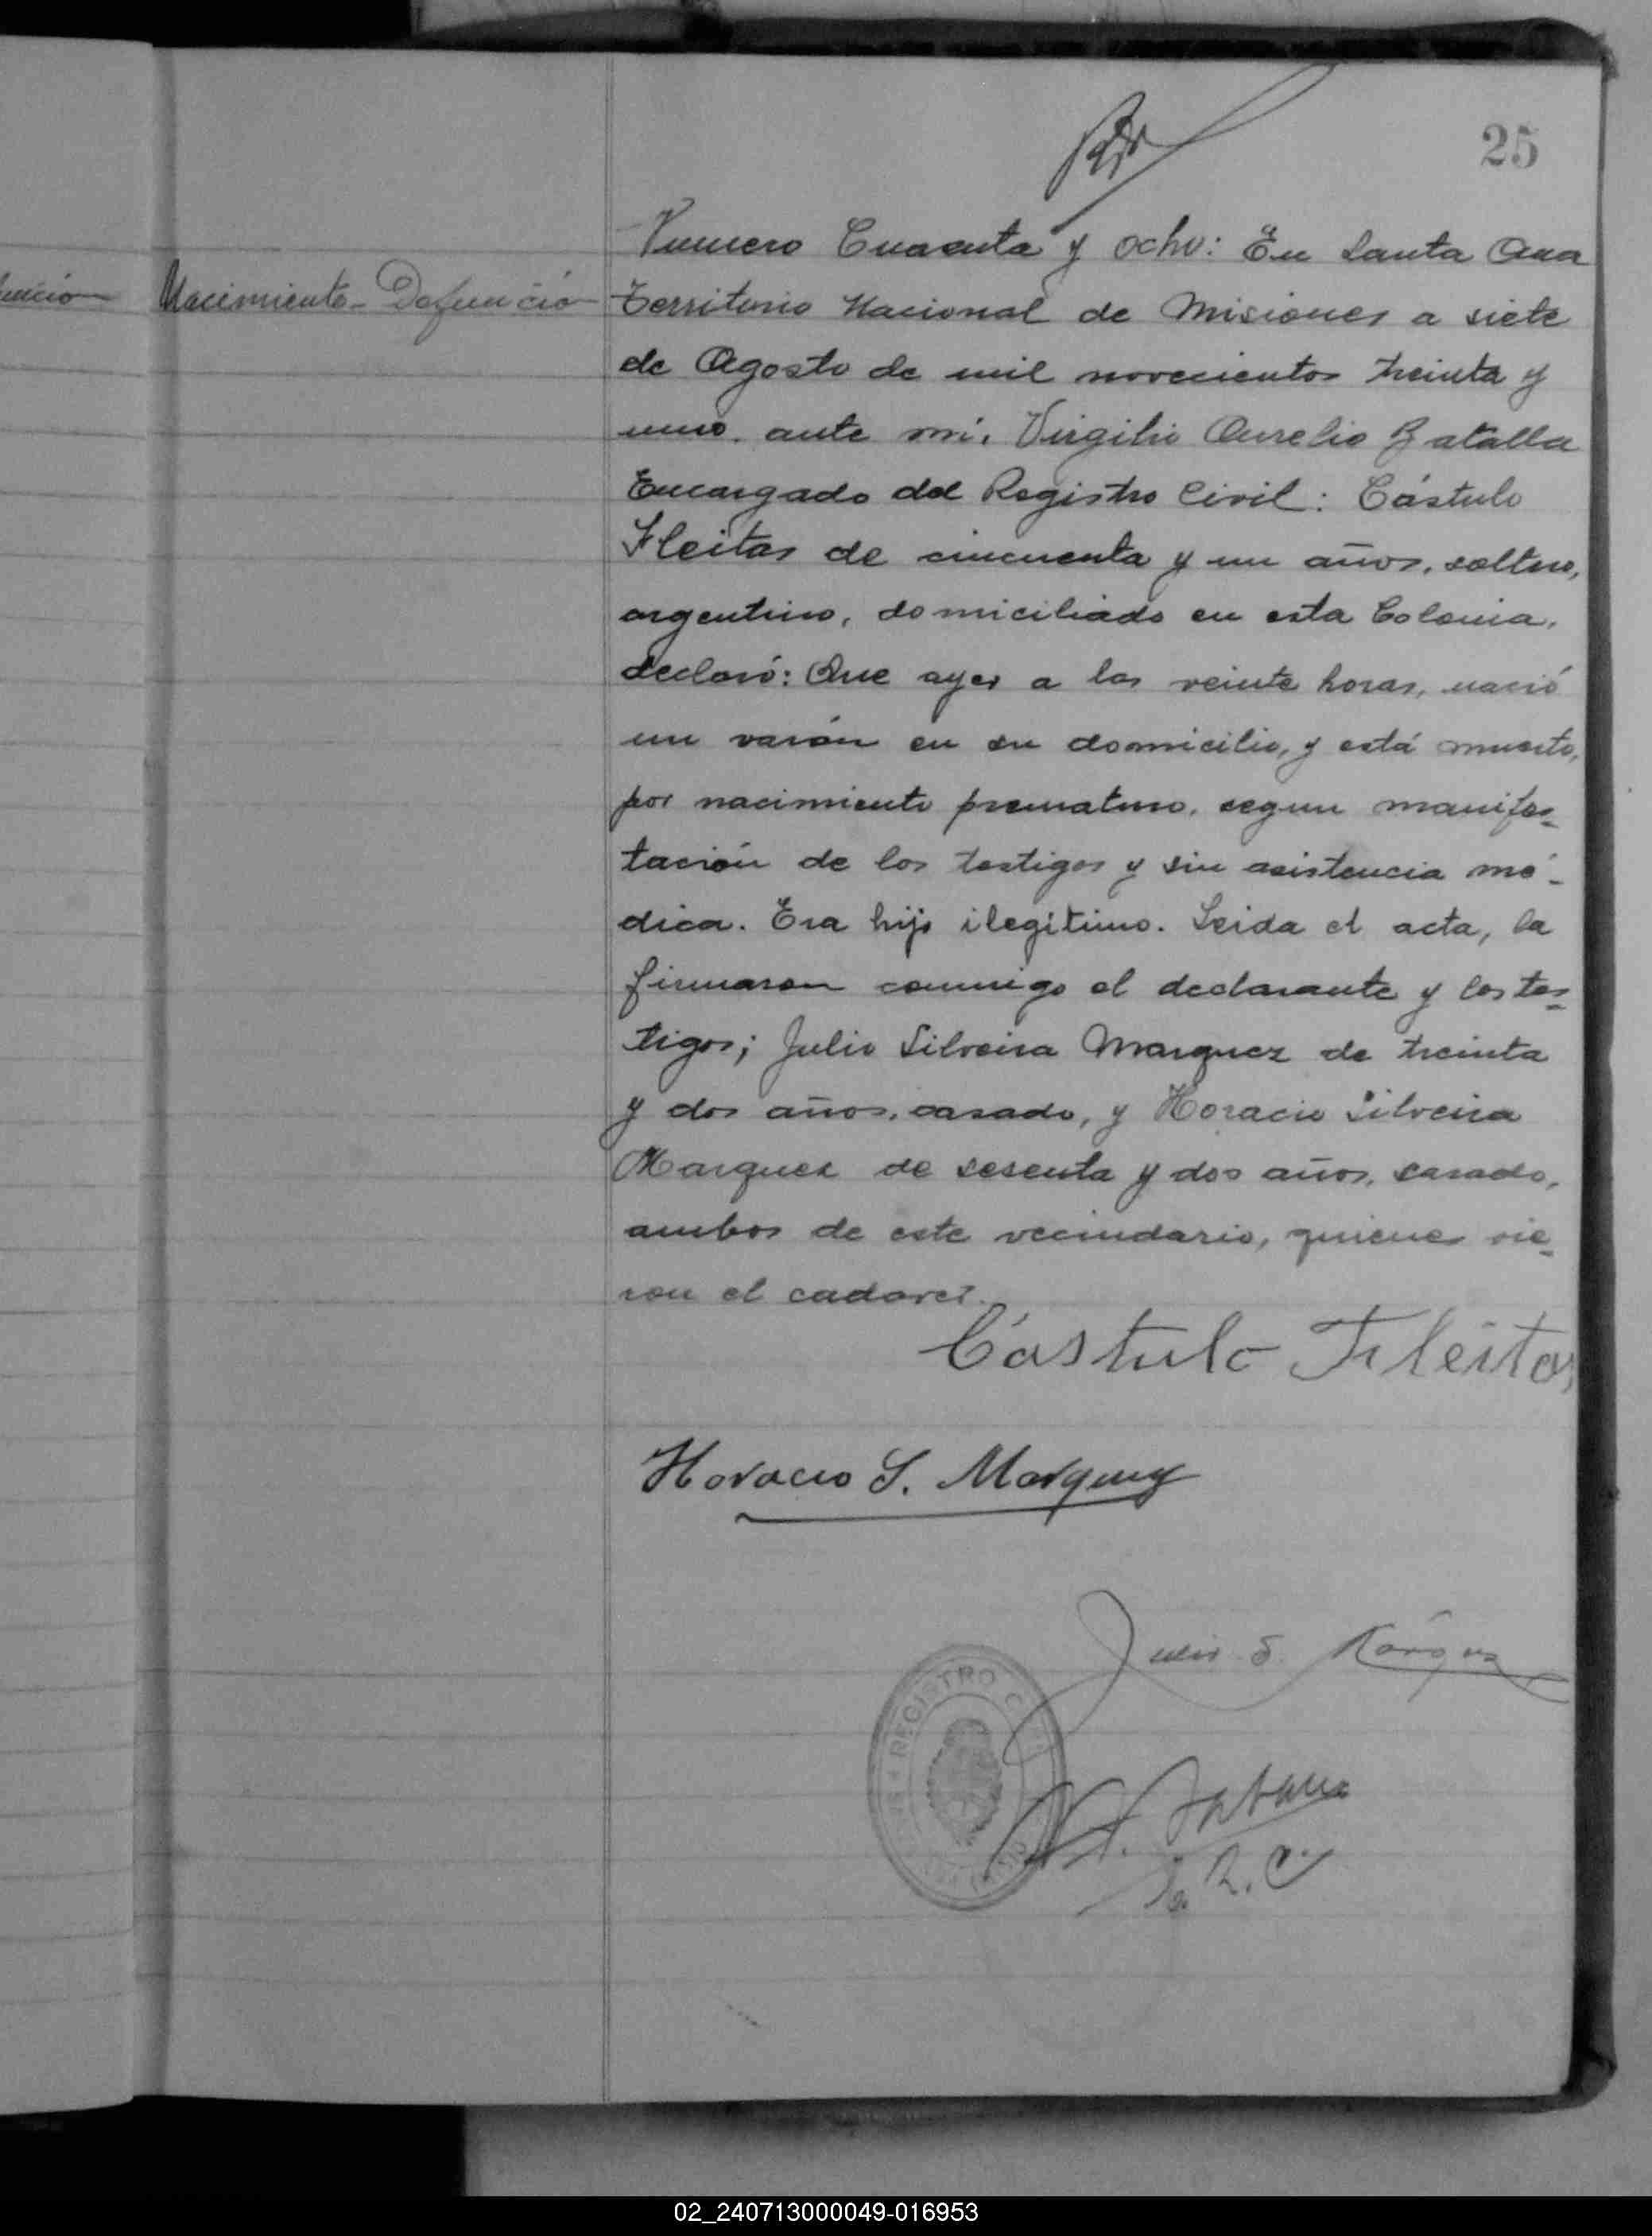 25
Numero Cuarenta y ocho: En Santa Ana
Nacimiento-Defunción
Territorio Nacional de Misiones a siete
de Agosto de mil novecientos treinta y
uno. ante mí, Virgilio Aurelio Batalla
Encargado del Registro Civil: Cástulo
Fleitas de cincuenta y un años, soltero,
argentino, domiciliado en esta Colonia,
declaró: Que ayer a las veinte horas, nació
un varón en su domicilio, y está muerto,
por nacimiento prematuro, segun manifes-
tación de los testigos y sin asistencia mé-
dica. Era hijo ilegítimo. Leida el acta, la
firmaron conmigo el declarante y los tes-
tigos; Julio Silveira Marquez de treinta
y dos años, casado, y Horacio Silveira
Marquez de sesenta y dos años, casado,
ambos de este vecindario, quienes vie-
ron el cadaver.
Cástulo Fleitas
Horacio S. Marquez
Julio S. Márquez
REGISTRO
E. R. C.
02_240713000049-016953